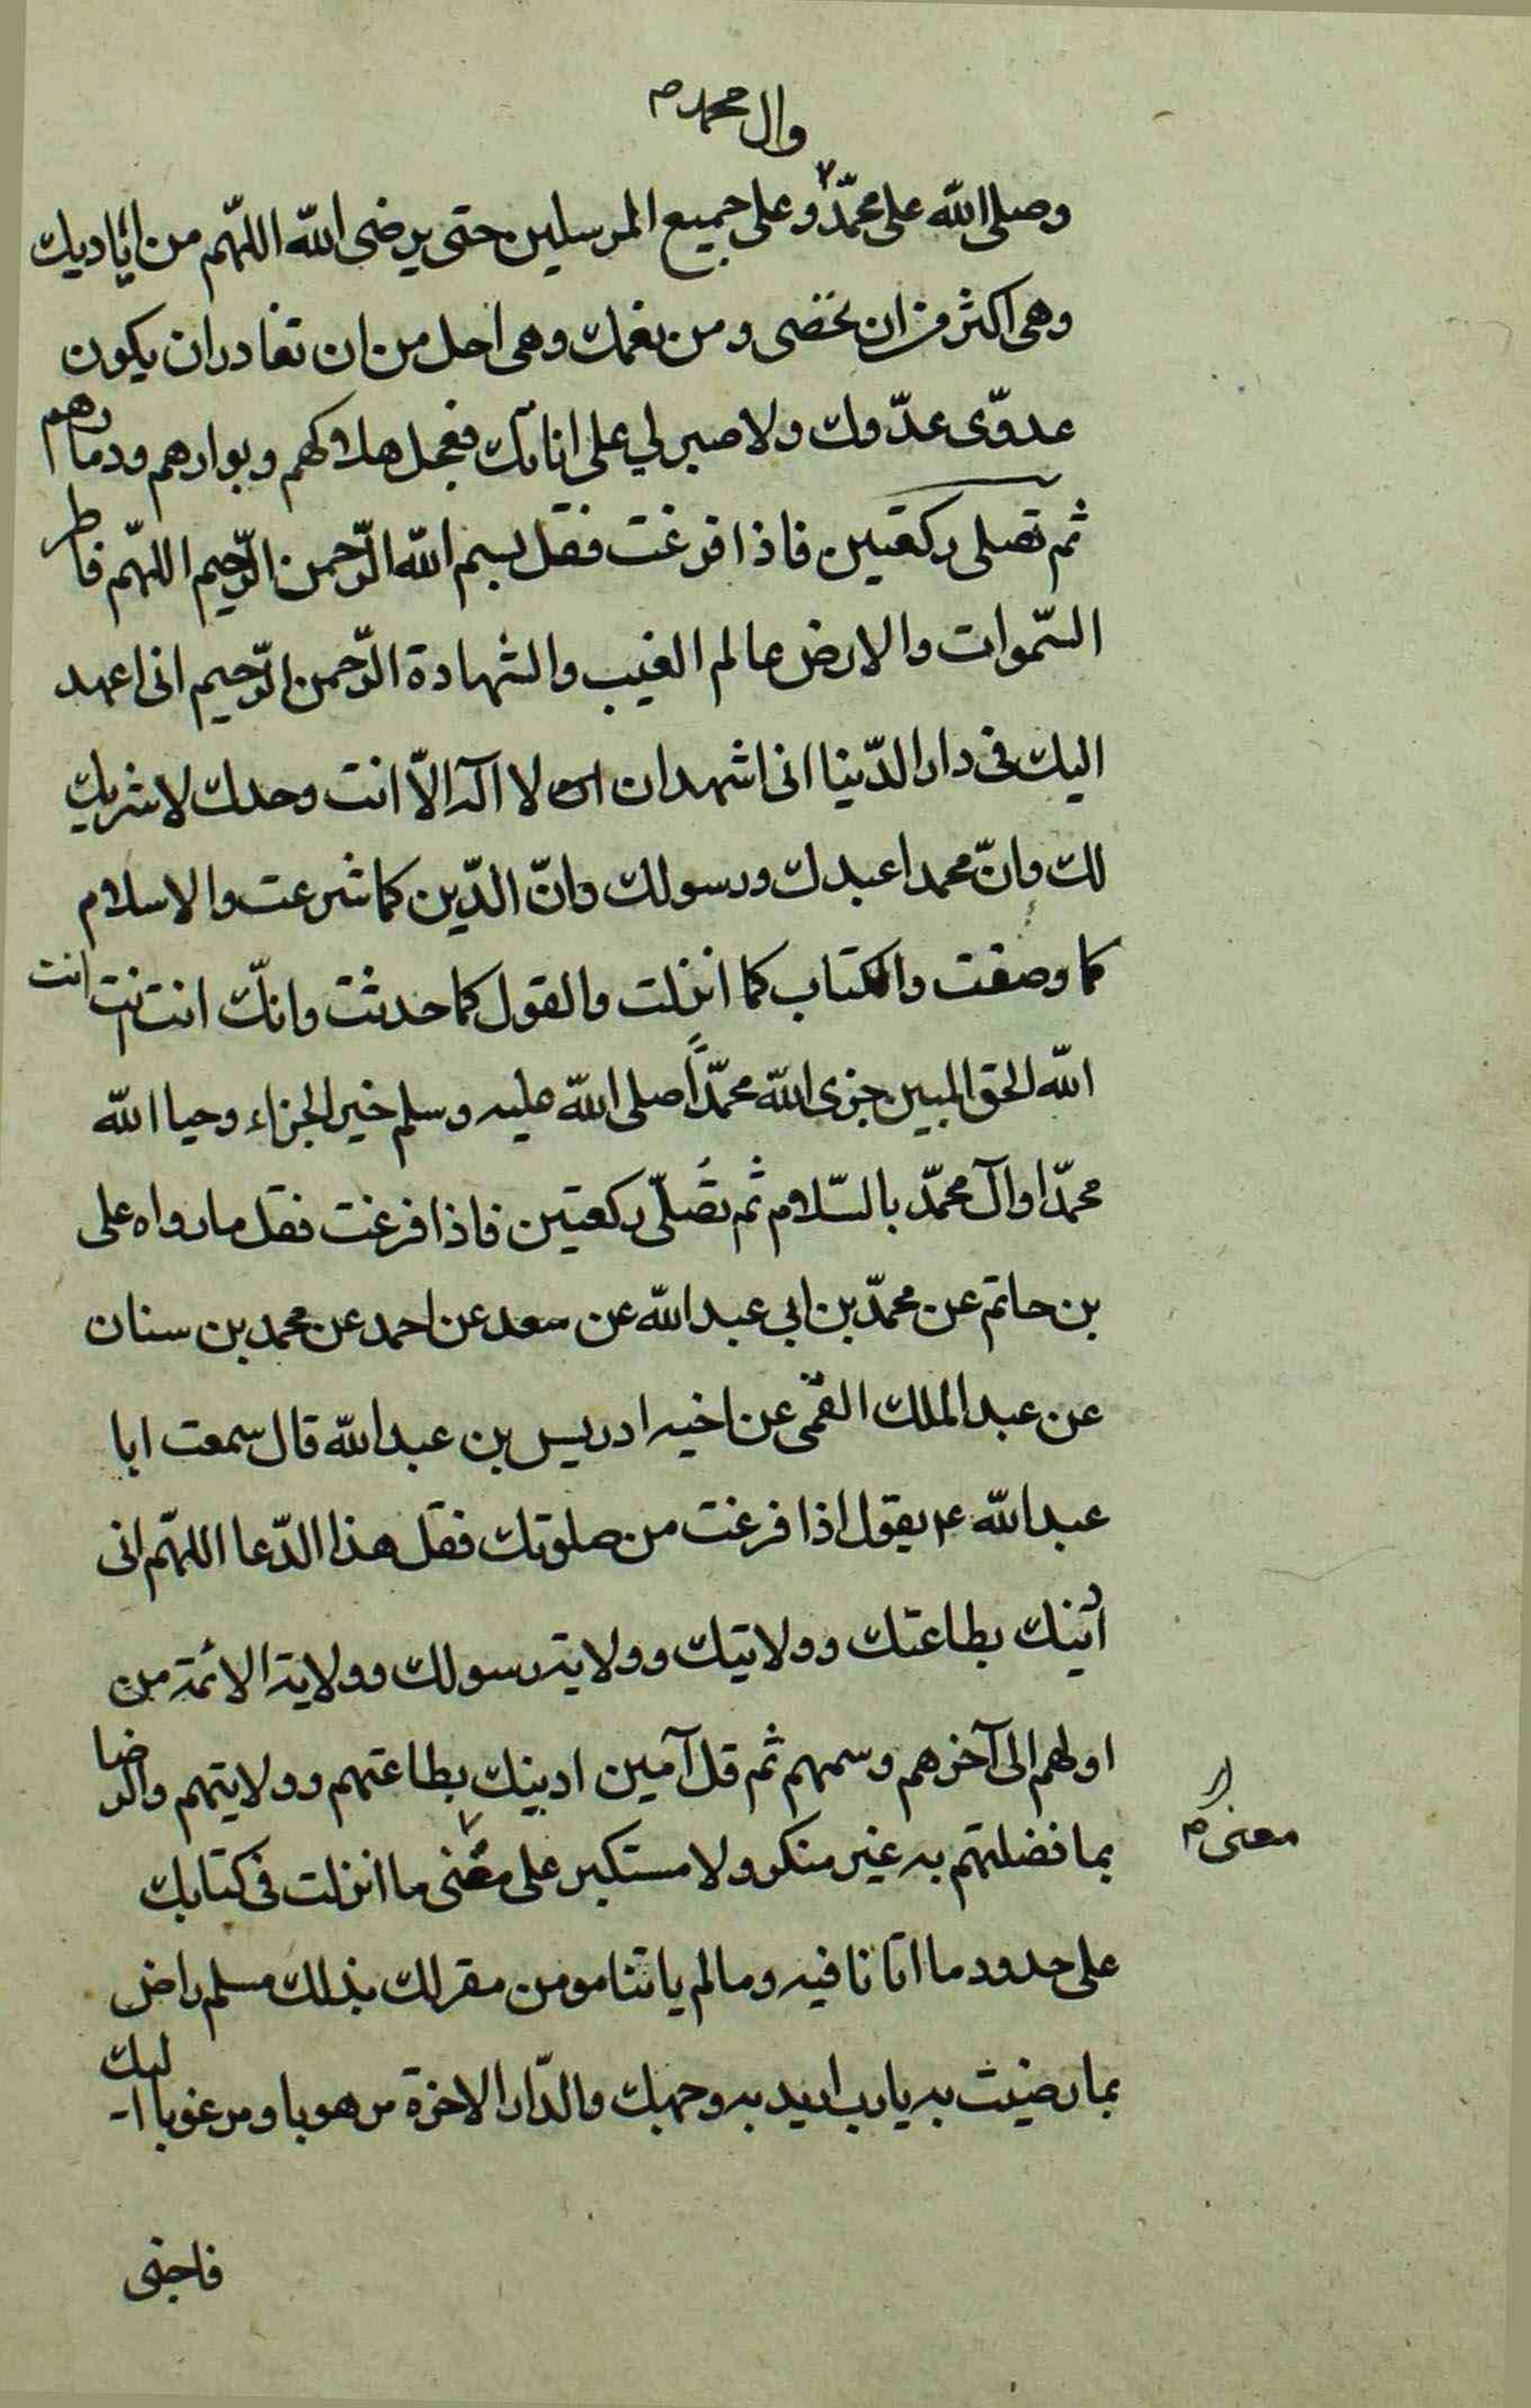 وال محمد م
وصلى الله على محمّد وعلى جميع المرسلين حتى يرضى الله اللهّم من اياديك
وهى اكثر من ان تحصى ومن نعمك وهى اجل من ان تغادر ان يكون
عدوّى عدّوك ولا صبر لي على اناتك فعجل هلاكهم وبوارهم ودمارهم
ثم تصلى ركعتين فاذا فرغت فقل بسم الله الرّحمن الرّحيم اللهّم فاطر
السّموات والارض عالم الغيب والشهادة الرّحمن الرّحيم انى اعهد
اليك فى دار الدّنيا انى اشهد ان ان لا اله الاّ انت وحدك لا شريك
لك وانّ محمدا عبدك ورسولك وانّ الدّين كما شرعت والاسلام
كما وصفت والكتاب كما انزلت والقول كما حدثت وانكّ انت انت انت
الله الحق المبين جزى الله محمّداً صلى الله عليه وسلم خير الجزاء وحيا الله
محمّدا وآل محمّد بالسّلام ثم تصُلّى ركعتين فاذا فرغت فقل ما رواه على
بن حاتم عن محمّد بن ابي عبد الله عن سعد عن احمد عن محمد بن سنان
عن عبد الملك القمّى عن اخيه ادريس بن عبد الله قال سمعت ابا
عبد الله ع يقول اذا فرغت من صلوتك فقل هذا الدّعا اللهّم انى
ادينك بطاعتك وولايتك وولاية رسولك وولاية الائمة من
اولهم الى آخرهم وسمهم ثم قل آمين ادينك بطاعتهم وولايتهم والرضا
بما فضلتهم به غير منكر ولا مستكبر على معنى ما انزلت فى كتابك
معنى م
على حدود ما اتانا فيه وما لم ياتنا مومن مقر لك بذلك مسلم راض
بما رضيت به يا رب اريد به وجهك والدّار الاخرة مرهوبا ومرغوبا اليك
فاحينى